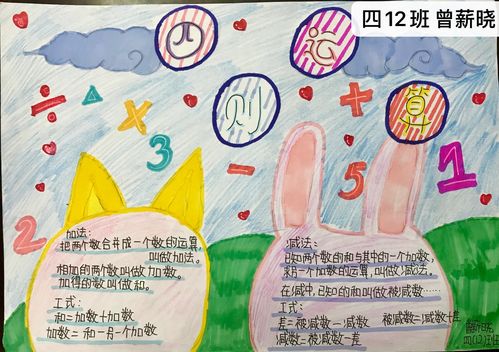 四12班 曾薪晓
四则运算
÷ × + -
3 2 5 1
加法:
把两个数合并成一个数的运算,
叫做加法。
相加的两个数叫做加数。
加得的数叫做和。
公式:
和=加数+加数
加数=和-另一个加数
减法:
已知两个数的和与其中的一个加数,
求另一个加数的运算,叫做减法。
在减中,已知的和叫做被减数……
公式:
差=被减数-减数 被减数=减数+差
减数=被减数-差
曾薪晓
四(12)班